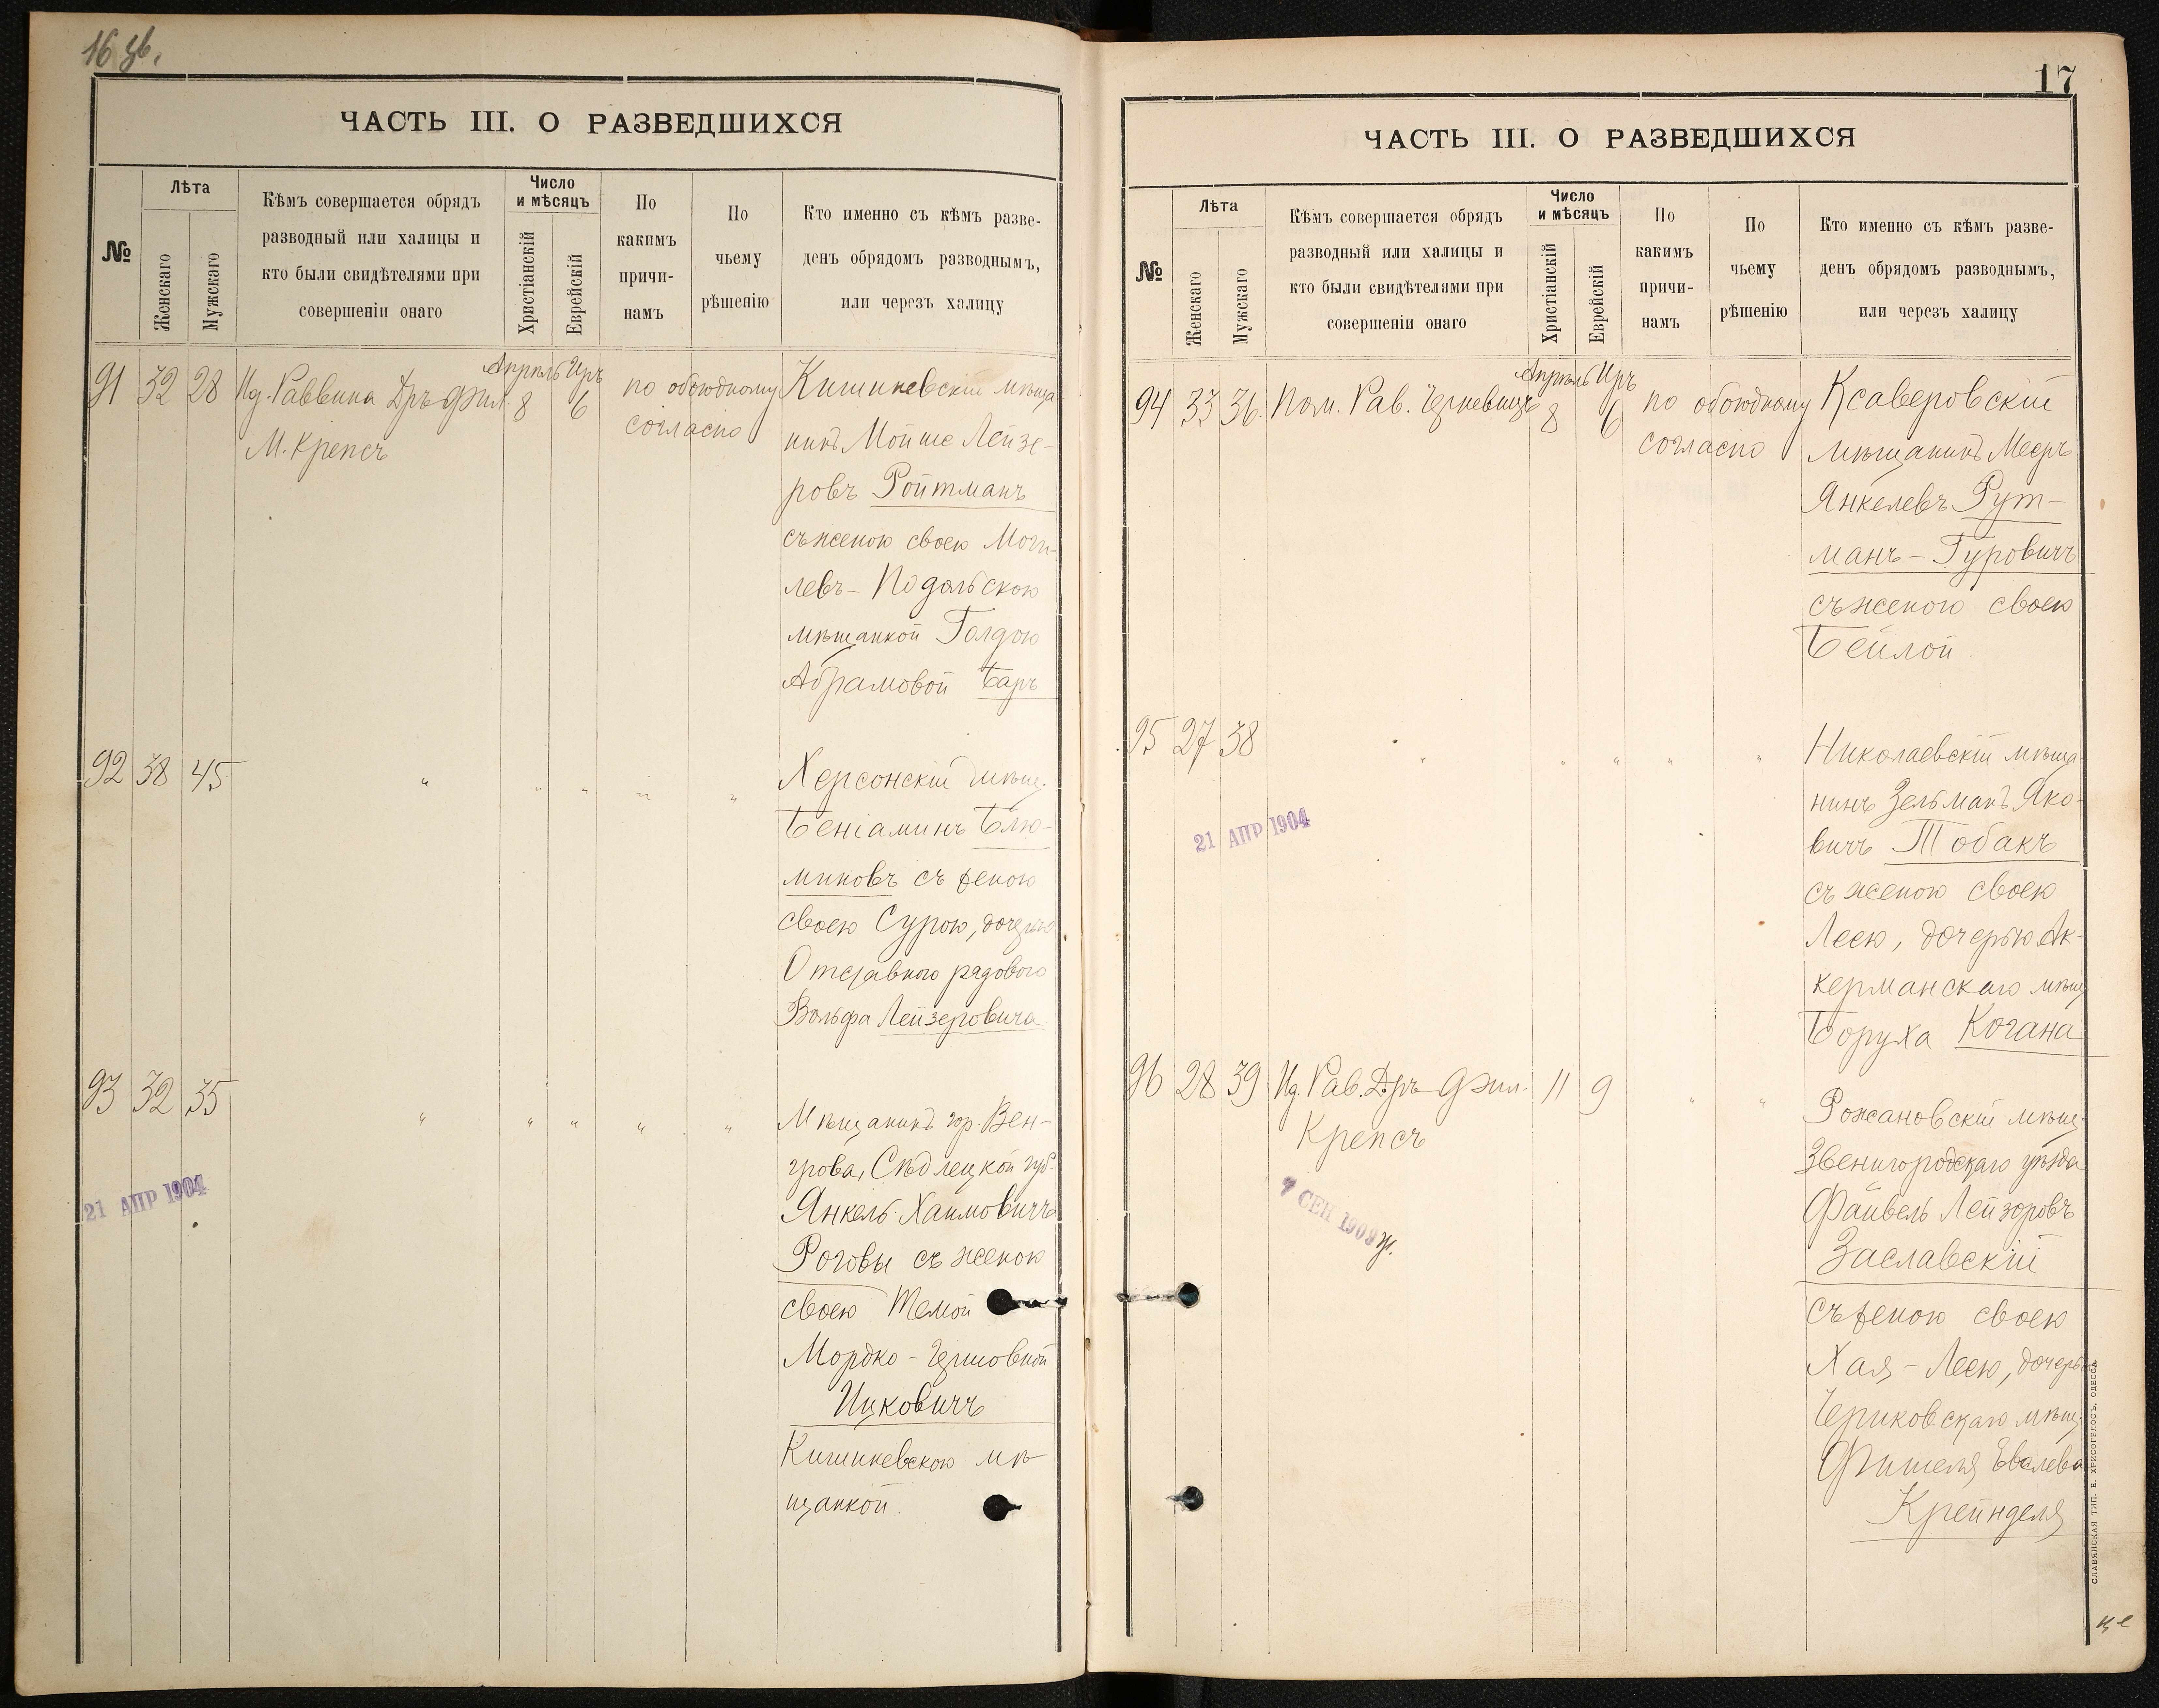 16 об.
ЧАСТЬ III. О РАЗВЕДШИХСЯ
№
Лѣта
Женскаго
Мужскаго
Кѣмъ совершается обрядъ
разводный или халицы и
кто были свидѣтелями при
совершеніи онаго
Число
и мѣсяцъ
Христіанскій
Еврейскій
По
какимъ
причи-
намъ
По
чьему
рѣшенію
Кто именно съ кѣмъ разве-
денъ обрядомъ разводнымъ,
или черезъ халицу
91 32 28
Раввина Дръ Фил.
М. Крепсъ
Апрѣль Иръ
8 6
по обоюдному
согласію
Кишиневскій мѣща-
нинъ Мойше Лейзе-
ровъ Ройтманъ
съ женою своею Моги-
левъ-Подольскою
мѣщанкой Голдою
Абрамовой Баръ
92 38 45 " " " " "
Херсонскій мѣщ.
Беніаминъ Блю-
миновъ съ женою
своею Сурою, дочерью
Отставного рядового
Вольфа Лейзеровича
93 32 35 " " " " "
Мѣщанинъ гор. Вен-
грова, Сѣдлецкой губ.
Янкель Хаимовичъ
Роговы съ женою
своею Темой
Мордко-Гершовной
Ицковичъ
Кишиневскою мѣ-
щанкой.
21 АПР 1904
17
ЧАСТЬ III. О РАЗВЕДШИХСЯ
№
Лѣта
Женскаго
Мужскаго
Кѣмъ совершается обрядъ
разводный или халицы и
кто были свидѣтелями при
совершеніи онаго
Число
и мѣсяцъ
Христіанскій
Еврейскій
По
какимъ
причи-
намъ
По
чьему
рѣшенію
Кто именно съ кѣмъ разве-
денъ обрядомъ разводнымъ,
или черезъ халицу
94 33 36
Пом. Рав.
Апрѣль Иръ
8 6
по обоюдному
согласію
Ксаверовскій
мѣщанинъ Мееръ
Янкелевъ Рут-
манъ-Гуровичъ
съ женою своею
Бейлой.
95 27 38 " " " " "
Николаевскій мѣща-
нинъ Зельманъ Яко-
вичъ Тобакъ
съ женою своею
Леею, дочерью Ак-
керманскаго мѣщ.
Боруха Когана
21 АПР 1904
96 28 39
Рав. Дръ Фил.
Крепсъ
11 9 " "
Рожановскій мѣщ.
Звенигородскаго уѣзда
Файвель Лейзоровъ
Заславскій
съ женою своею
Хая-Леею, дочерью
Чериковскаго мѣщ.
Фишеля
Крейнделя
7 СЕН 1909 г.
СЛАВЯНСКАЯ ТИП. Е. ХРИСОГЕЛОСЪ, ОДЕССА